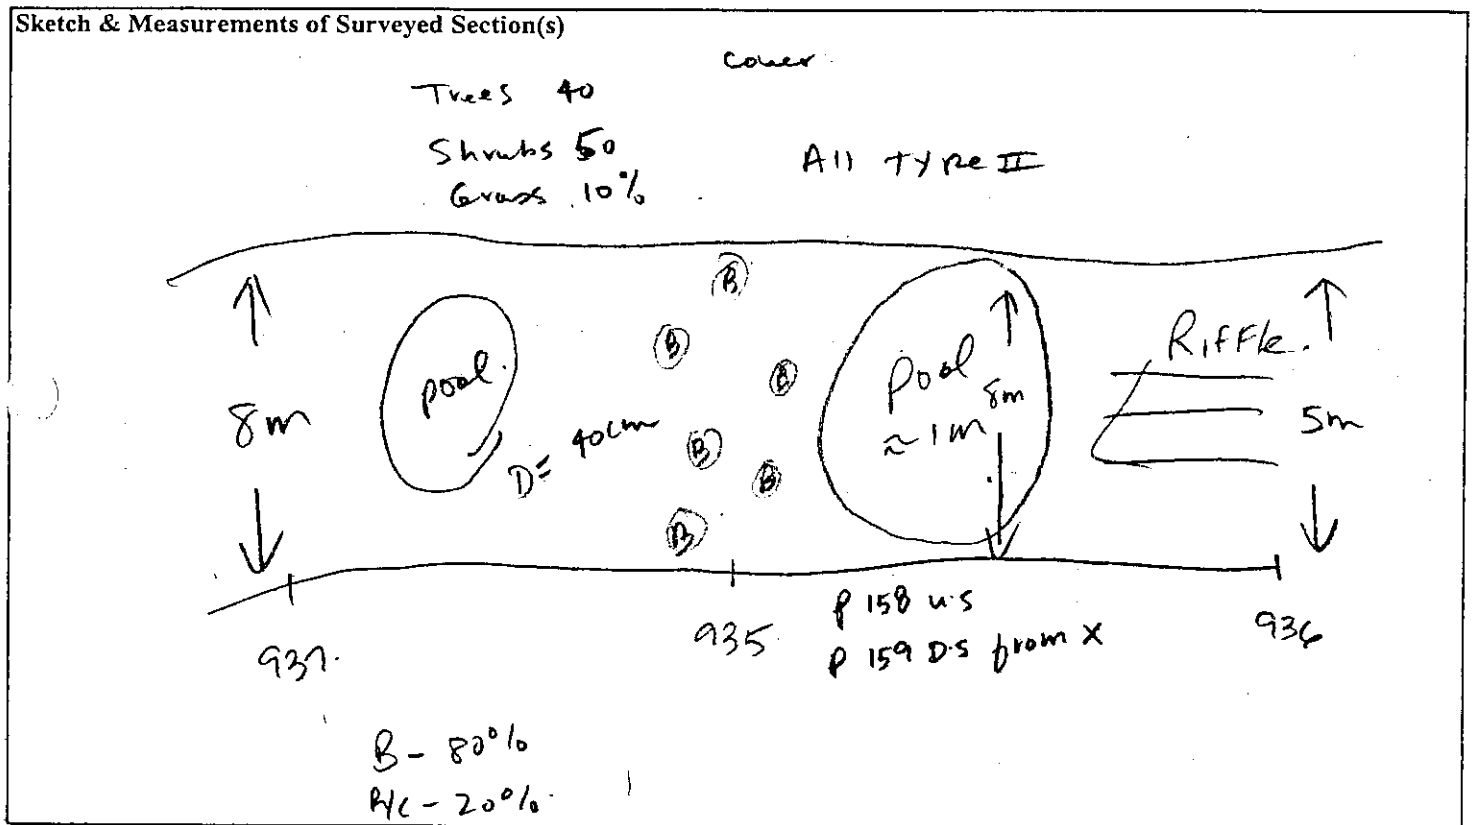 Sketch & Measurements of Surveyed Section(s)
Cover
Trees 40
Shrubs 50
Grass 10%
All Type II
B
B
B
B
B
B
pool.
D= 40cm
Pool
≈ 1m
8m
Riffle.
8m
5m
937.
935
936
P 158 u.s
P 159 D.s from X
B - 80%
R/C - 20%